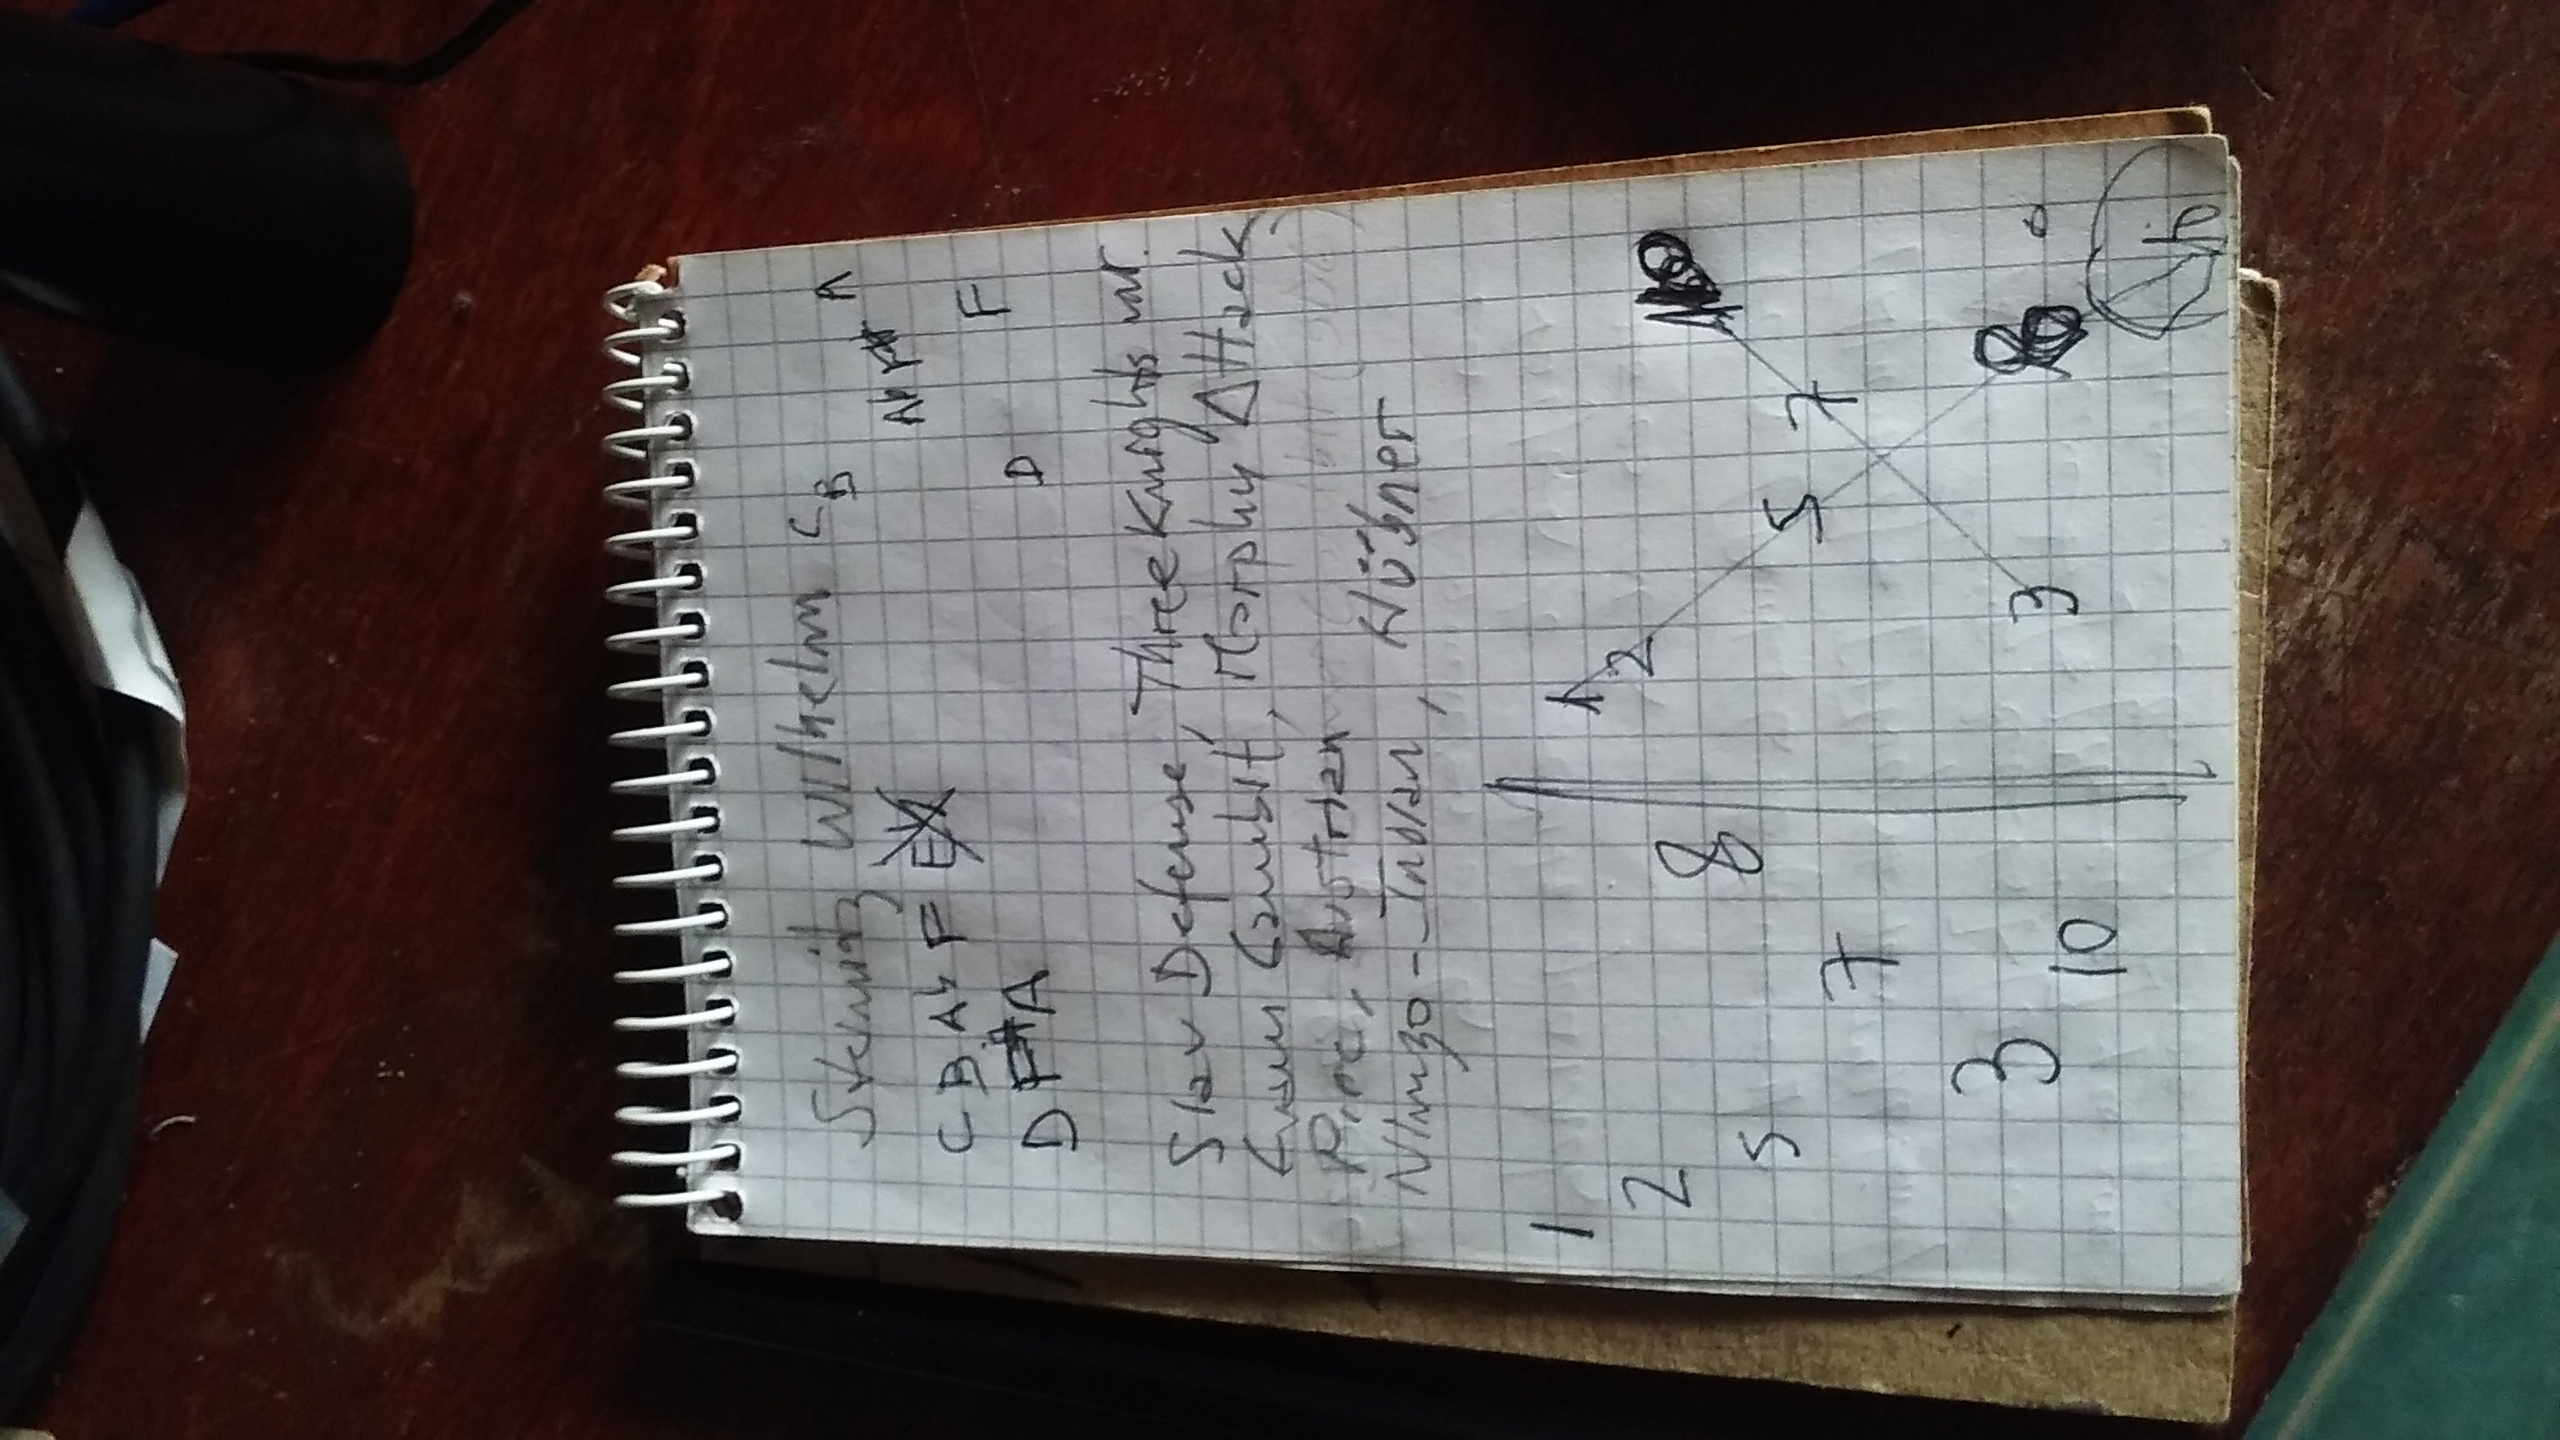 Steinitz Wilhelm C B A
Ab F#
C B Ab F
D F# A D F
Slav Defense, Three Knights var.
Evans Gambit, Morphy Attack
Pirc, Austrian
Nimzo-Indian, Hübner
1 1
2 2
8
5 5 7
7
3 3 8
10 10